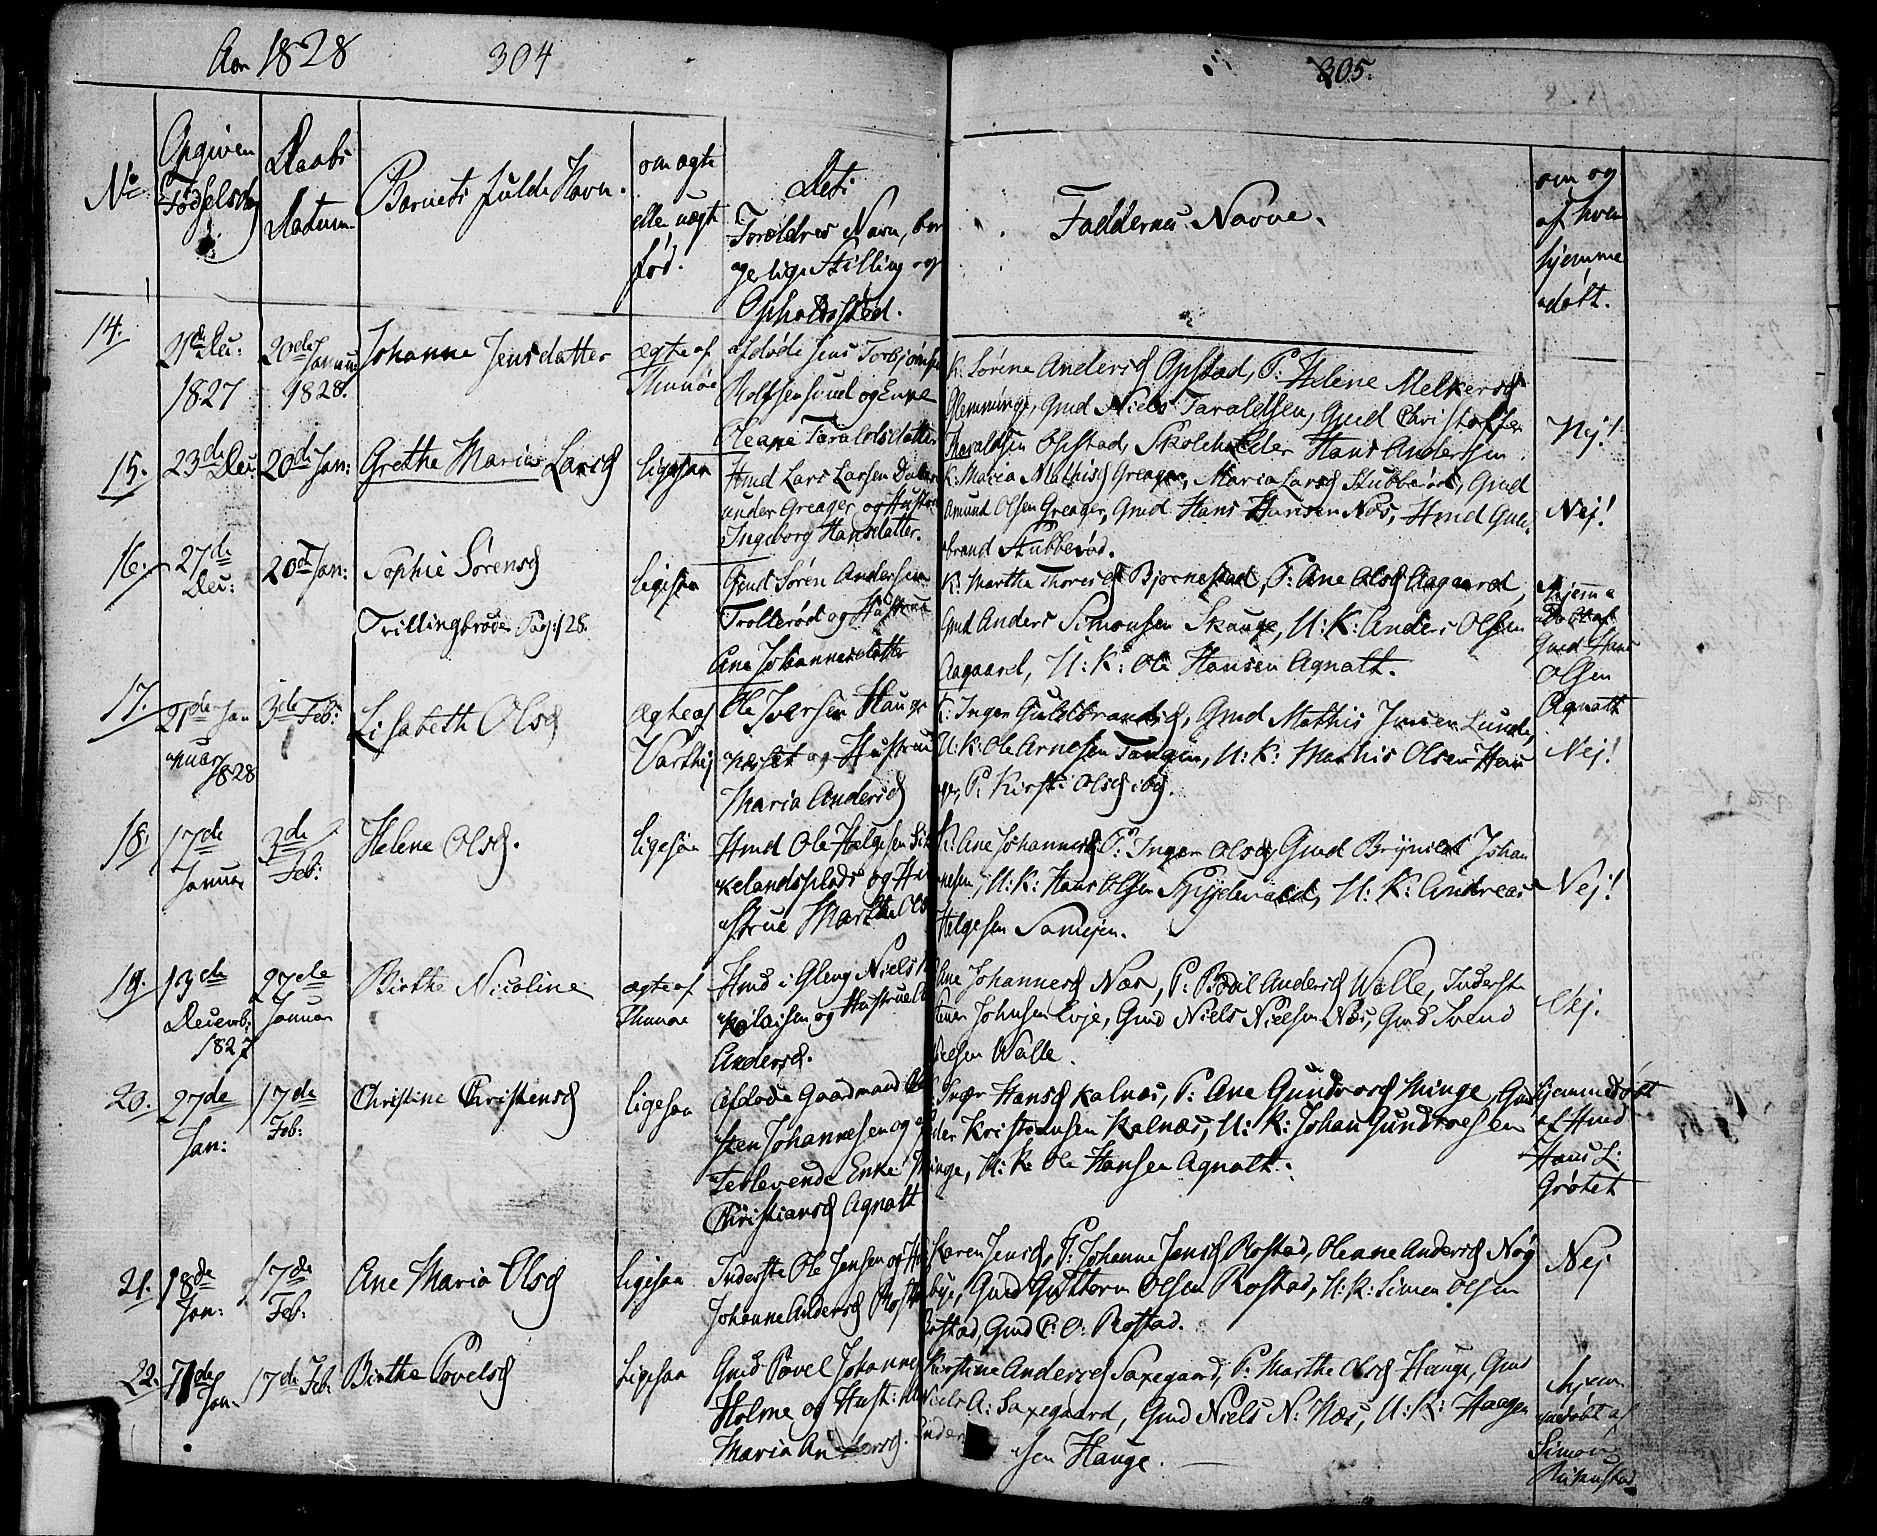 Aar 1828 304
305.
No
Opgiven Fødselsdag
Daabs Datum
Barnets fulde Navn.
om ægte
elle uægt
fød.
Dets
Forældres Navn, bor
gerlige Stilling og
Opholdssted.
Faddernes Navne.
om og
af hvem
hjemme
døbt.
14.
21de Dec:
1827
20de Januar
1828.
Johanne Jensdatter
ægte af
Thunøe
afdøde Jens Torbjørnsen
Rolfsensrud og Enke
Oleane Taraldsdatter
K. Sørine Andersd Opstad, P: Helene Melkersd
Glemminge, Gmd Niels Taraldsen, Gmd Christoffer
Tharaldsen Opstad, Skoleholder Hans Andersen.
Nej!
15.
23de Dec:
20de Jan:
Grethe Maria Larsd
ligesaa
Hmd Lars Larsen
under Greager og Hustrue
Ingeborg Hansdatter.
K. Maria Mathisd Greager, Maria Larsd Stubberød, Gmd
Amund Olsen Greager, Gmd Hans Hansen Næs, Hmd Gul
brand Stubberød.
Nej!
16.
27de
Dec:
20de Jan:
Sophie Sørensd
Tvillingbroder Pag: 128.
ligesaa
Gmd Søren Andersen
Trollerød og Hustrue
Ane Johannesdatter
K: Marthe Thoresd Bjørnestad, P: Ane Olsd Aagaard,
Gmd Anders Simonsen Skauge, U: K: Anders Olsen
Aagaard, U: K: Ole Hansen Agnalt.
Hjemme
døbt af
Gmd Hans
Olsen
Agnalt
17.
21de Jan
nuar
1828
3de Feb:
Lisabeth Olsd
ægte af
Varthej
Ole Iversen Hauge
næset og Hustrue
Maria Andersd
K: Inger Guldbrandsd, Gmd Mathis Jensen Lunde,
U: K: Ole Arnesen Tangen, U: K: Mathis Olsen Hau
ger, P: Kirsti Olsd ibd.
Nej!
18.
17de
Januar
3de
Feb:
Helene Olsd.
ligesaa
Hmd Ole Helgesen
kelandsplads og Hu
strue Marthe Olsd
K: Ane Johannesd P: Inger Olsd, Gmd Brynild Johan
nesen, U: K: Hans Olsen Spydevold, U: K: Andreas
Helgesen Samejen.
Nej!
19.
13de
Decemb:
1827
27de
Januar
Birthe Nicoline
ægte af
Thunøe
Hmd i Gleng Niels
kolaisen og Hustrue
Andersd.
Ane Johannesd Næs, P: Bodil Andersd Walle, Inderste
Johnsen Evje, Gmd Niels Nielsen Næs, Gmd Svend
Nielsen Walle.
Nej.
20.
27de
Jan:
17de
Feb:
Christine Christensd
ligesaa
Afdøde Gaardmand
sten Johannesen og
terlevende Enke
Christiansd Agnalt
Inger Hansd Kalnæs, P: Ane Gundrosd Minge, Gmd
der Kristiansen Kalnæs, U: K: Johan Gundroesen
Minge, U: K: Ole Hansen Agnalt.
hjemmedøbt
af Hmd
Hans L:
Grøtet
21.
18de
Jan:
17de
Feb:
Ane Maria Olsd
ligesaa
Inderste Ole Jensen og
Johanne Andersd Rostad
Karen Jensd, P: Johanne Jensd Rostad, Oleane Andersd Nøg
bye, Gmd Guttorm Olsen Rostad, U: K: Simen Olsen
Rostad, Gmd P: O: Rostad.
Nej
22.
Jan.
17de Feb.
Birthe Povelsd
Ligesaa
Gmd Povel Johanne
Holme og Hust:
Maria
Kirstine Andersd Saxegaard, P: Marthe Olsd Hauge, Gmd
Niels A: Saxegaard, Gmd Niels N: Næs, U: K: Haagen
Ander sen Hauge.
hjem
medøbt af
Simon